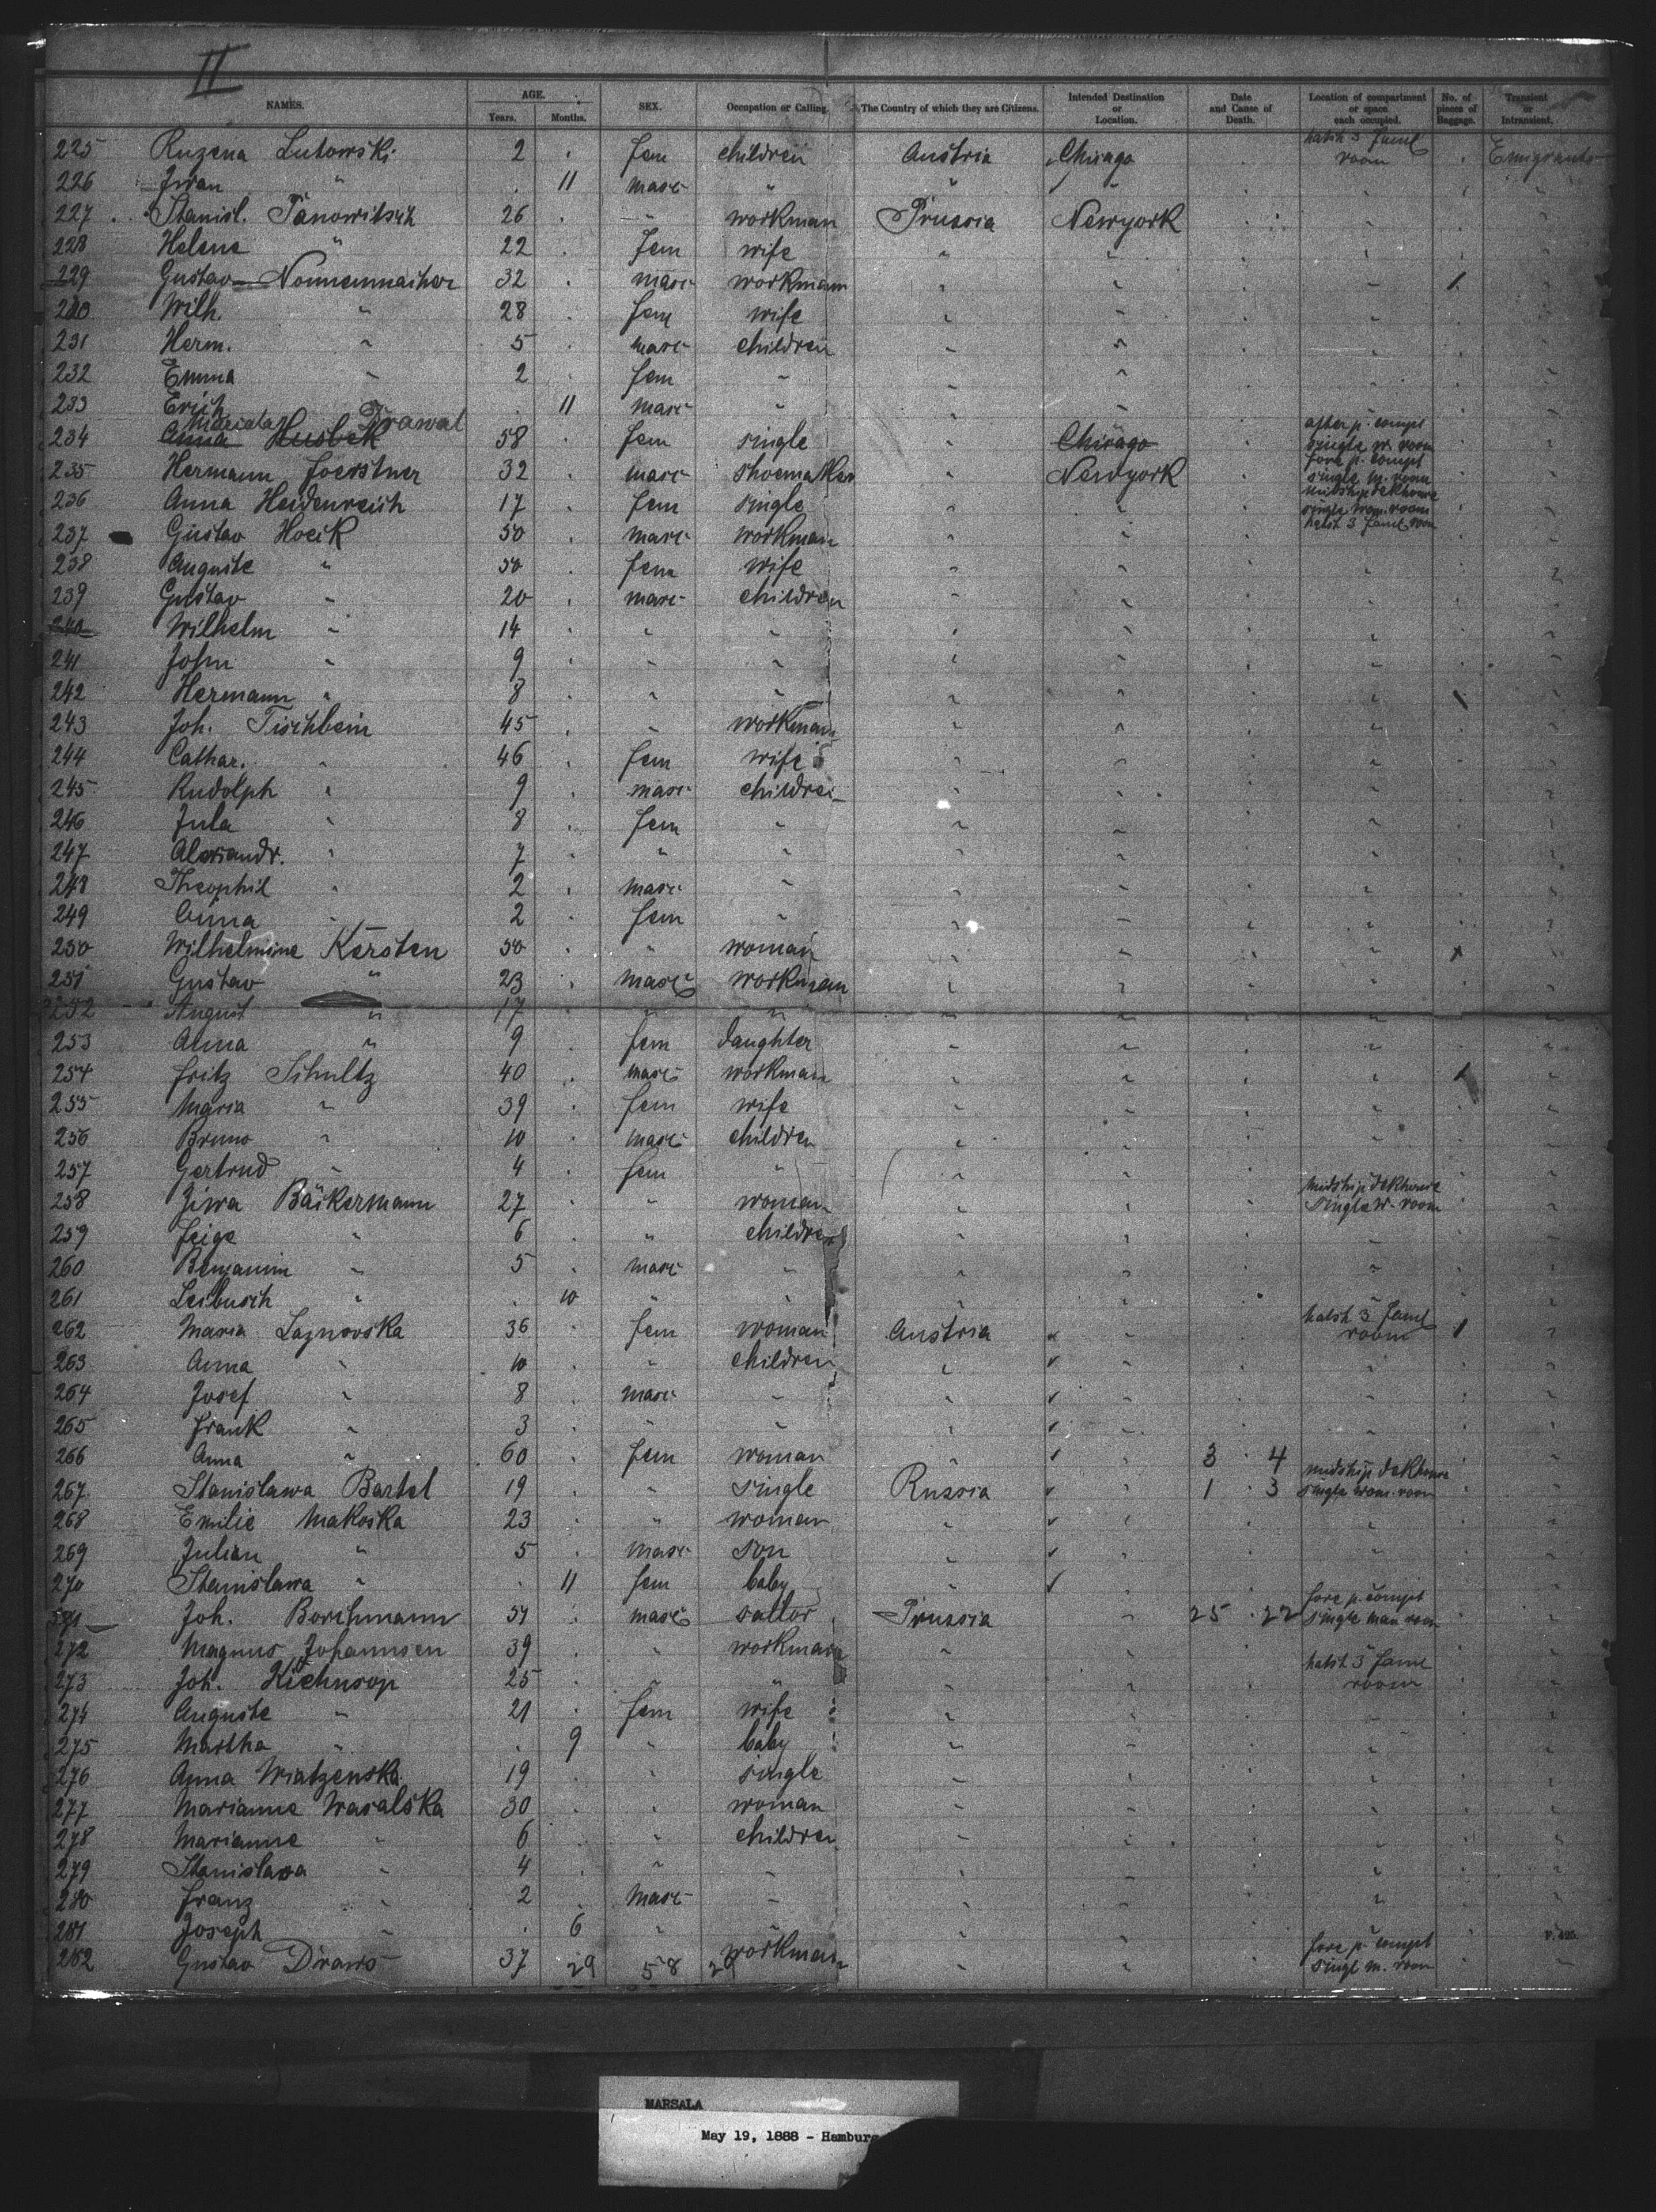 II
NAMES. AGE. Years. Months. SEX. Occupation or Calling. The Country of which they are Citizens. Intended Destination or Location. Date and Cause of Death. Location of compartment or space each occupied. No. of pieces of Baggage. Transient or Intransient.
225 Ruzena Lutowski 2 . fem children Austria Chicago hatch 3 faml room Emigrants
226 Iwan " . 11 masc " " "
227 Stanisl. Janowitsch 26 . " workman Prussia Newyork
228 Helene " 22 . fem wife " "
229 Gustav Nonnenmacher 32 . masc workman " " 1
230 Wilh. " 28 . fem wife " "
231 Herm. " 5 . masc children " "
232 Emma " 2 . fem " " "
233 Erich . 11 masc " " "
Trawat
234 Anna Husbek 58 . fem single " Chicago after p. compt single w. room
235 Hermann Foerstner 32 . masc shoemaker " Newyork fore p. compt single m. room
236 Anna Heidenreich 17 . fem single " " midship dekhouse single wom. room
237 Gustav Hoeck 50 . masc workman " " hatch 3 faml room
238 Auguste " 50 . fem wife " "
239 Gustav " 20 . masc children " "
240 Wilhelm " 14 . " " " "
241 John " 9 . " " " "
242 Hermann " 8 . " " " "
243 Joh. Tischbein 45 . " workman " "
244 Cathar. " 46 . fem wife " "
245 Rudolph " 9 . masc children " "
246 Jula " 8 . fem " " "
247 Alexandr. " 7 . " " " "
248 Theophil " 2 . masc " " "
249 Anna " 2 . fem " " "
250 Wilhelmine Kersten 50 . " woman " "
251 Gustav " 23 . masc workman " "
252 August " 17 " " " "
253 Alma " 9 . fem daughter " "
254 Fritz Schultz 40 . masc workman " " 1
255 Maria " 39 . fem wife " "
256 Bruno " 10 . masc children " "
257 Gertrud " 4 . fem " " "
258 Ziwa Bäckermann 27 . " woman " " midship dekhouse single w. room
259 Feige " 6 . " children " "
260 Benjamin " 5 . masc " " "
261 Leibusch " . 10 " " " "
262 Maria Laznovska 36 . fem woman Austria " hatch 3 faml room 1
263 Anna " 10 . " children " "
264 Josef " 8 . masc " " "
265 Frank " 3 . " " " "
266 Anna " 60 . fem woman " " 3 4
267 Stanislawa Bartel 19 . " single Russia " 1 3 midship dekhouse single wom. room
268 Emilie Makoska 23 . " woman " "
269 Julian " 5 . masc son " "
270 Stanislawa " . 11 fem baby " "
271 Joh. Borchmann 51 . masc sattor Prussia " 25 22 fore p. compt single man room
272 Magnus Johannsen 39 . " workman " "
273 Joh. Kichnsop 25 . " " " " hatch 3 faml room
274 Auguste " 21 . fem wife " "
275 Martha " . 9 " baby " "
276 Anna Wratzenska 19 . " single " "
277 Marianne Wasalska 30 . " woman " "
278 Marianne " 6 . " children " "
279 Stanislava " 4 . " " " "
280 Franz " 2 . masc " " "
281 Joseph " . 6 " " " "
282 Gustav Draws 37 workman " " fore p. compt singl m. room
29 58 29
MARSALA
May 19, 1888 - Hamburg